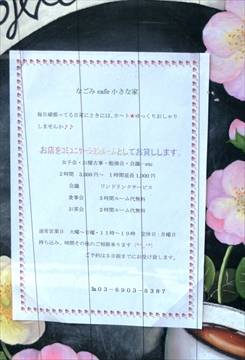 なごみ cafe 小さな家
毎日頑張ってる日常にときには、ホ～ト★ゆっくりおしゃべり
しませんか♪♪
お店をコミュニケーションルームとしてお貸しします。
女子会・お稽古事・勉強会・会議…etc
2時間 3,000円～ 1時間延長1,000円
会議 ワンドリンクサービス
食事会 2時間ルーム代無料
お茶会 2時間ルーム代無料
通常営業日 火曜～日曜・11時～19時 定休日:月曜日
持ち込み、時間その他のご相談承ります (*^_^*)
ご予約は3日前までにお受け致します。
℡03-6903-8387